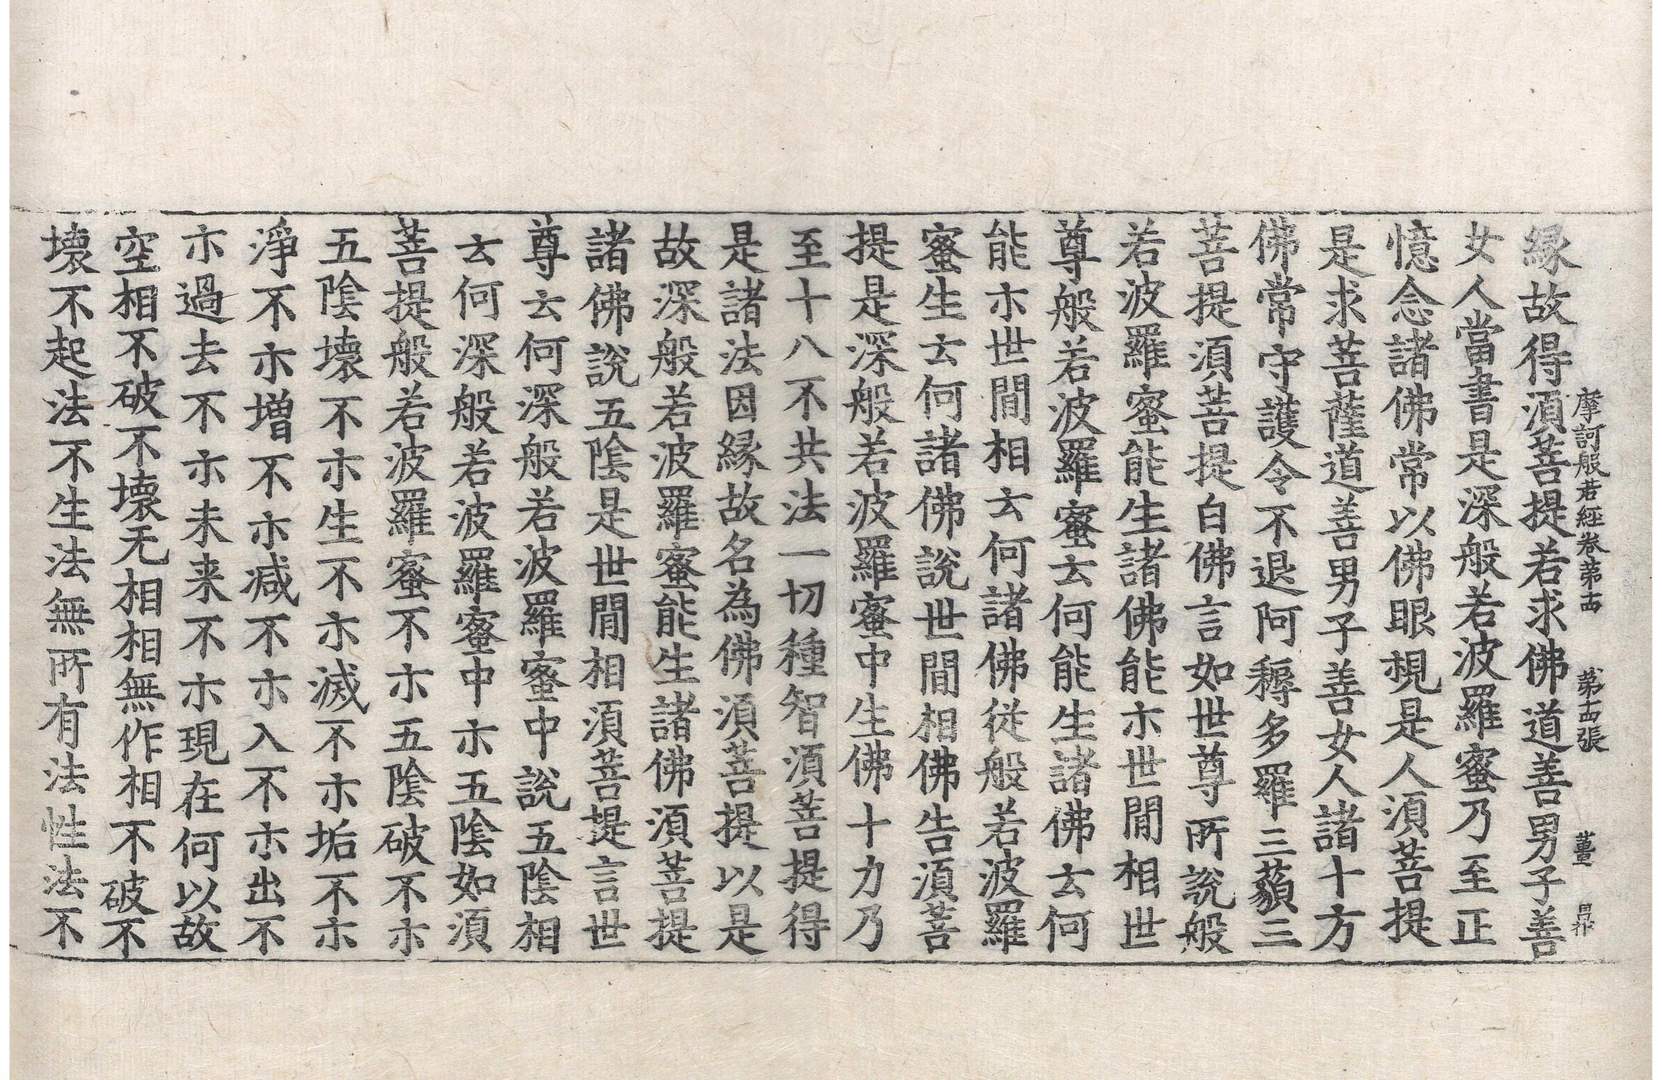 摩訶般若經卷第十四　第十四張　薑
緣故得湏菩提若求佛道善男子善
女人當書是深般若波羅蜜乃至正
憶念諸佛常以佛眼視是人湏菩提
是求菩薩道善男子善女人諸十方
佛常守護令不退阿耨多羅三藐三
菩提湏菩提白佛言如世尊所說般
若波羅蜜能生諸佛能示世間相世
尊般若波羅蜜云何能生諸佛云何
能示世間相云何諸佛從般若波羅
蜜生云何諸佛說世間相佛告湏菩
提是深般若波羅蜜中生佛十力乃
至十八不共法一切種智湏菩提得
是諸法因緣故名為佛湏菩提以是
故深般若波羅蜜能生諸佛湏菩提
諸佛說五陰是世間相湏菩提言世
尊云何深般若波羅蜜中說五陰相
云何深般若波羅蜜中示五陰如湏
菩提般若波羅蜜不示五陰破不示
五陰壞不示生不示滅不示垢不示
淨不示增不示减不示入不示出不
示過去不示未来不示現在何以故
空相不破不壞无相相無作相不破不
壞不起法不生法無所有法性法不